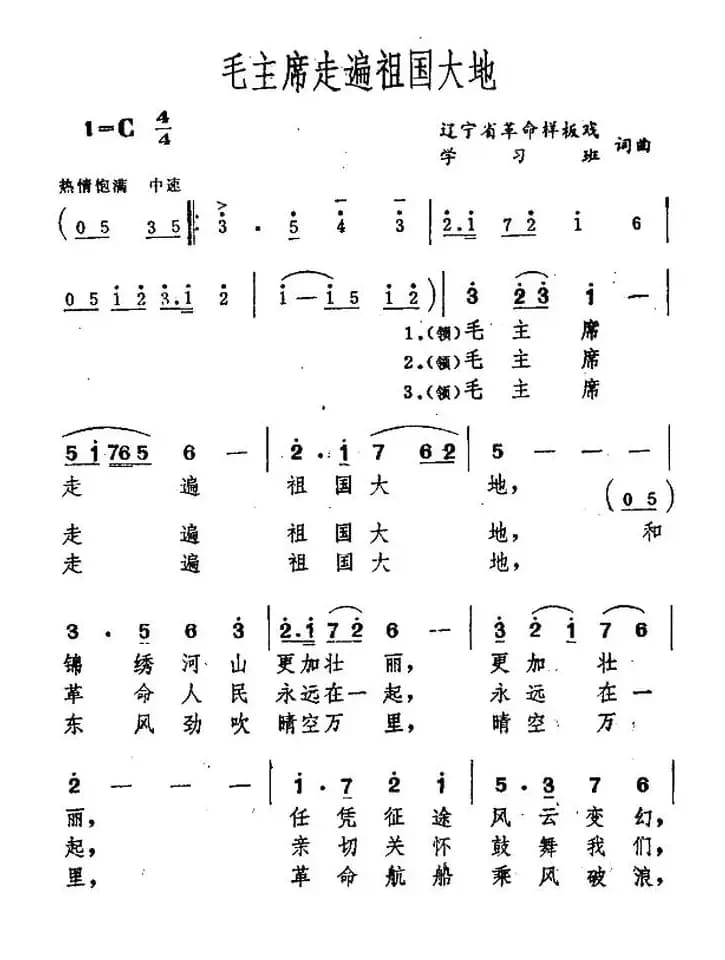 毛主席走遍祖国大地
1=C 4/4
辽宁省革命样板戏
学习班 词曲
热情饱满 中速
(0 5 3 5 ‖: 3 . 5 4 3 | 2.1 7 2 1 6 |
0 5 1 2 3.1 2 | 1 — 1 5 1 2) | 3 2 3 1 — |
1.(领)毛主席
2.(领)毛主席
3.(领)毛主席
5 1 7 6 5 6 — | 2 . 1 7 6 2 | 5 — — — |
走遍祖国大地,
(0 5)
走遍祖国大地, 和
走遍祖国大地,
3 . 5 6 3 | 2.1 7 2 6 — — | 3 2 1 7 6 |
锦绣河山更加壮丽, 更加壮
革命人民永远在一起, 永远在一
东风劲吹晴空万里, 晴空万
2 — — — | 1 . 7 2 1 | 5 . 3 7 6 |
丽, 任凭征途风云变幻,
起, 亲切关怀鼓舞我们,
里, 革命航船乘风破浪,